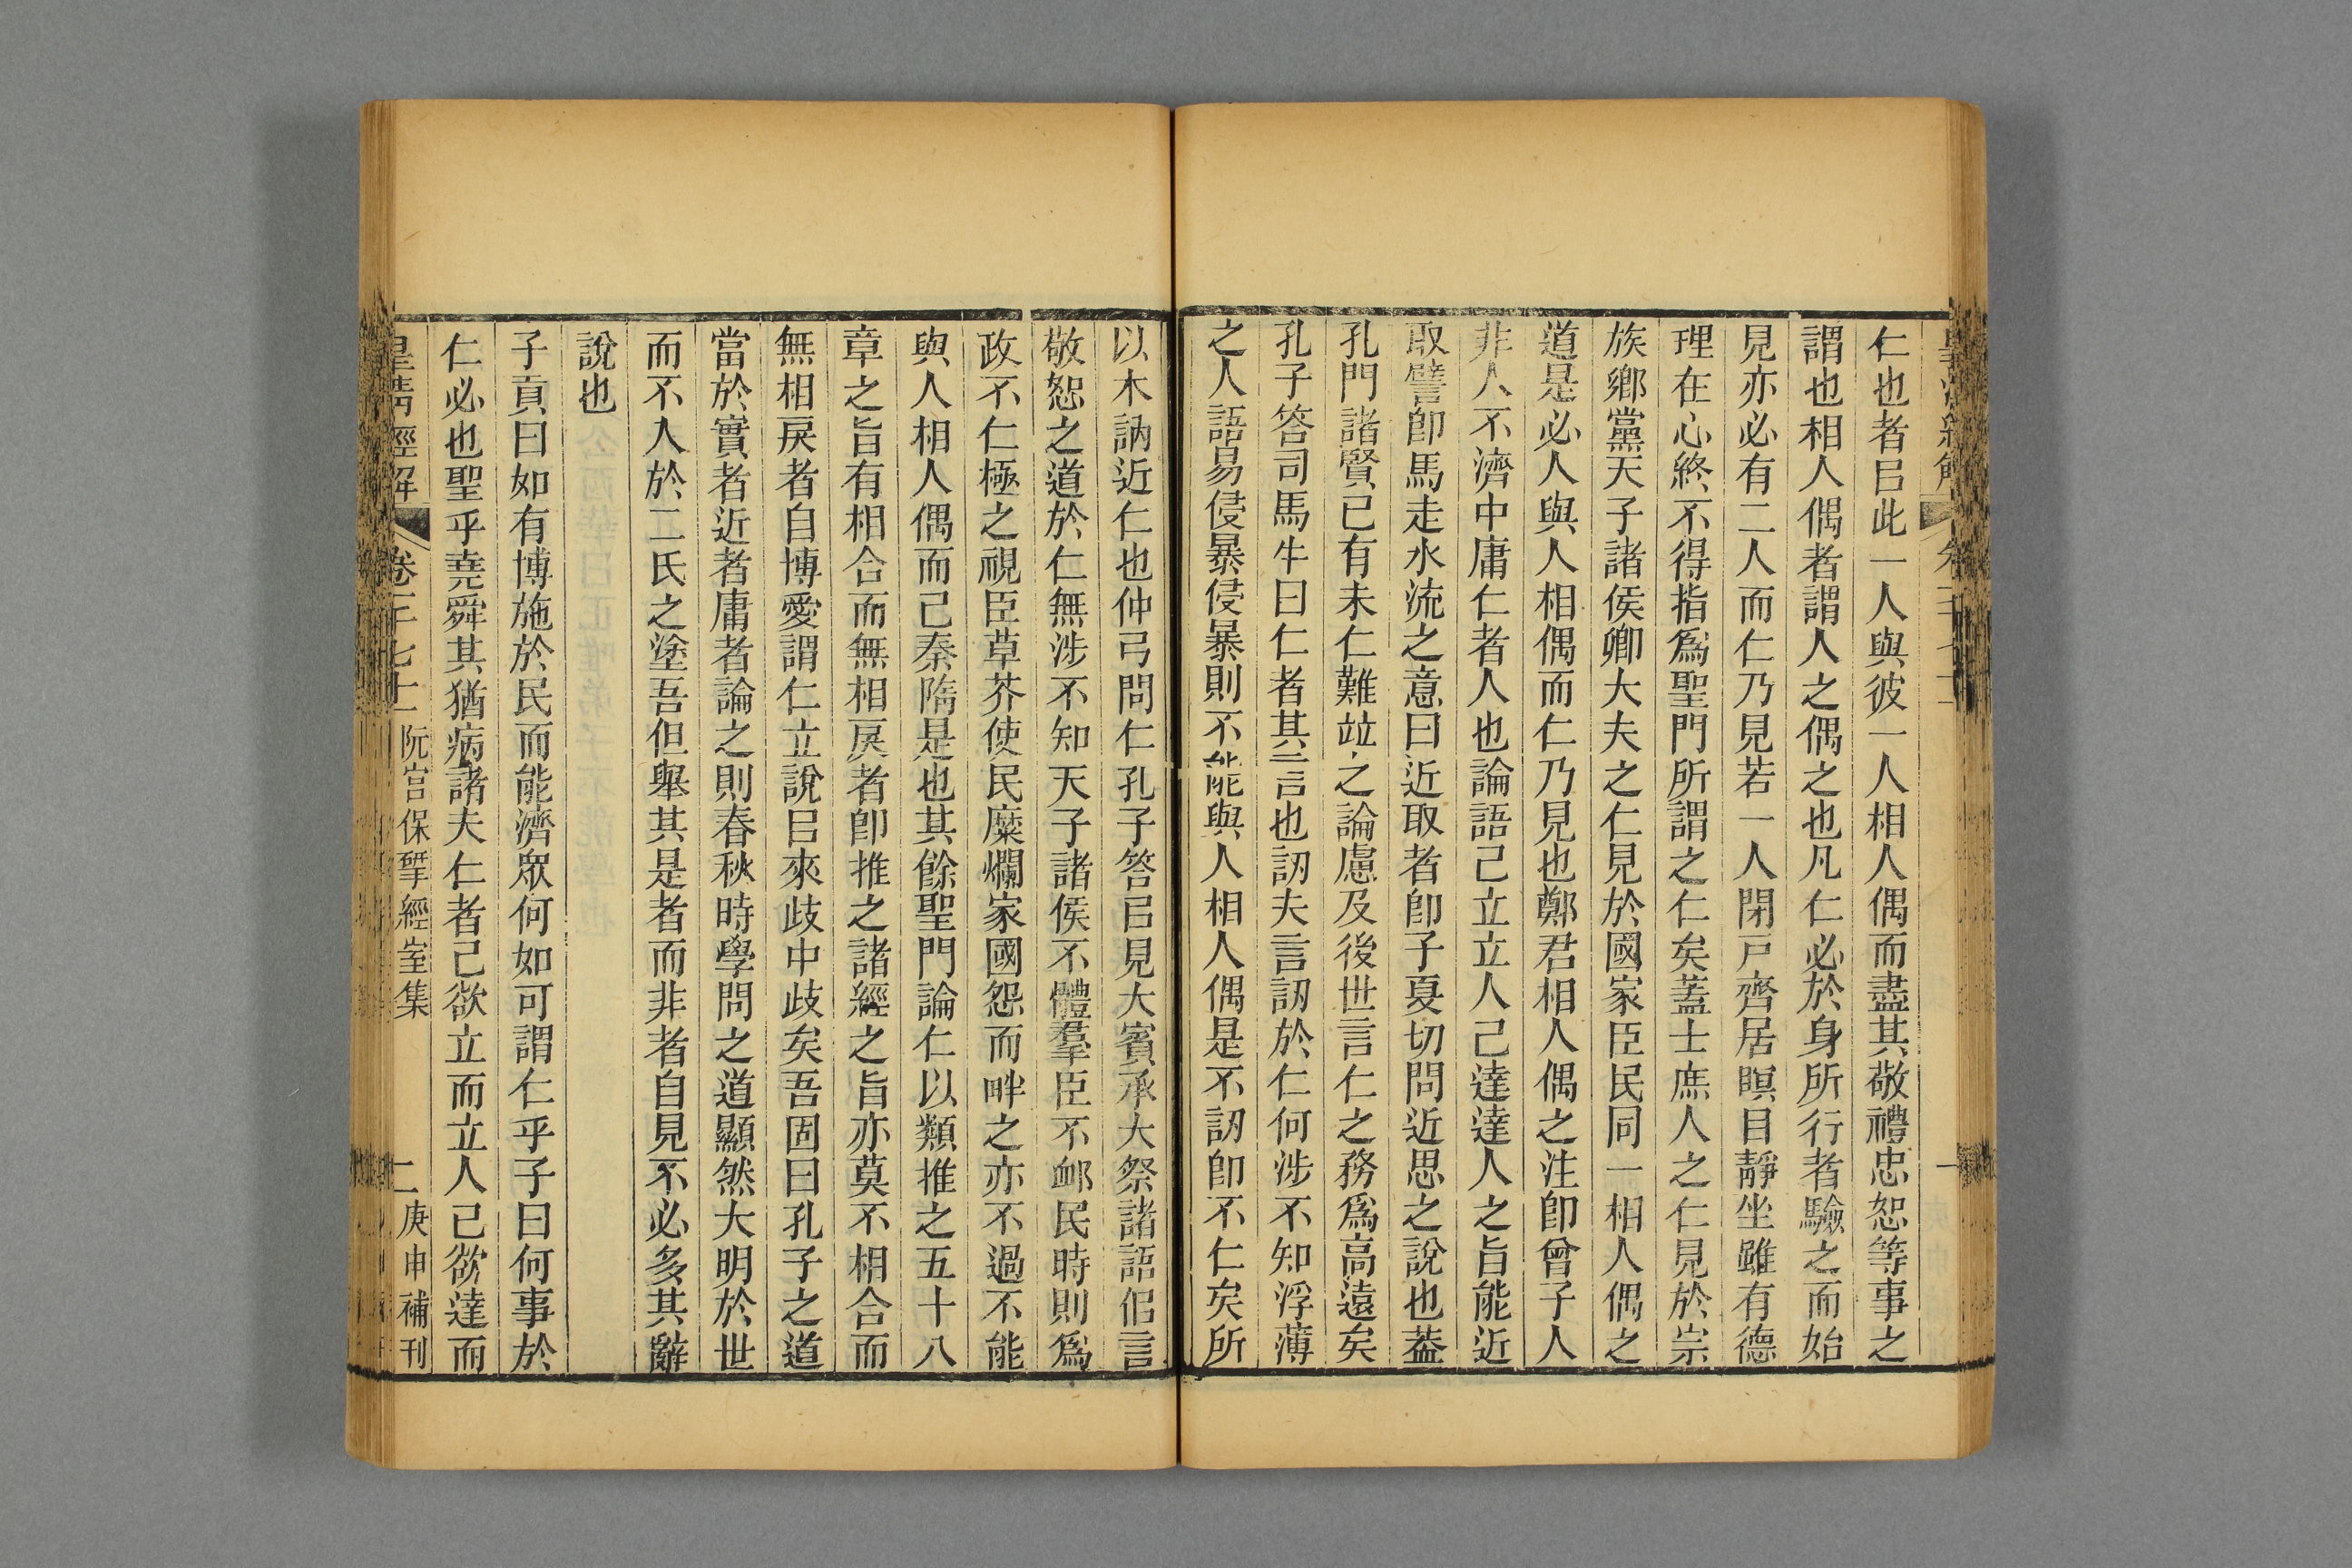 仁也者㠯此一人與彼一人相人偶而盡其敬禮忠恕等事之
謂也相人偶者謂人之偶之也凡仁必於身所行者驗之而始
見亦必有二人而仁乃見若一人閉戸齊居瞑目靜坐雖有德
理在心終不得指爲聖門所謂之仁矣蓋士庶人之仁見於宗
族鄉黨天子諸侯卿大夫之仁見於國家臣民同一相人偶之
道是必人與人相偶而仁乃見也鄭君相人偶之注卽曾子人
非人不濟中庸仁者人也論語己立立人己達達人之旨能近
取譬卽馬走水流之意曰近取者卽子夏切問近思之說也蓋
孔門諸賢已有未仁難竝之論慮及後世言仁之務爲高遠矣
孔子答司馬牛曰仁者其言也訒夫言訒於仁何涉不知浮薄
之人語易侵暴侵暴則不能與人相人偶是不訒卽不仁矣所
以木訥近仁也仲弓問仁孔子答㠯見大賓承大祭諸語侣言
敬恕之道於仁無涉不知天子諸侯不體羣臣不䘏民時則爲
政不仁極之視臣草芥使民糜爛家國怨而畔之亦不過不能
與人相人偶而已秦隋是也其餘聖門論仁以類推之五十八
章之旨有相合而無相戾者卽推之諸經之旨亦莫不相合而
無相戾者自博愛謂仁立說㠯來歧中歧矣吾固曰孔子之道
當於實者近者庸者論之則春秋時學問之道顯然大明於世
而不入於二氏之塗吾但舉其是者而非者自見不必多其辭
說也
子貢曰如有博施於民而能濟眾何如可謂仁乎子曰何事於
仁必也聖乎堯舜其猶病諸夫仁者己欲立而立人己欲達而
皇清經解 卷一千七十一 阮宫保揅經室集 二 庚申補刊